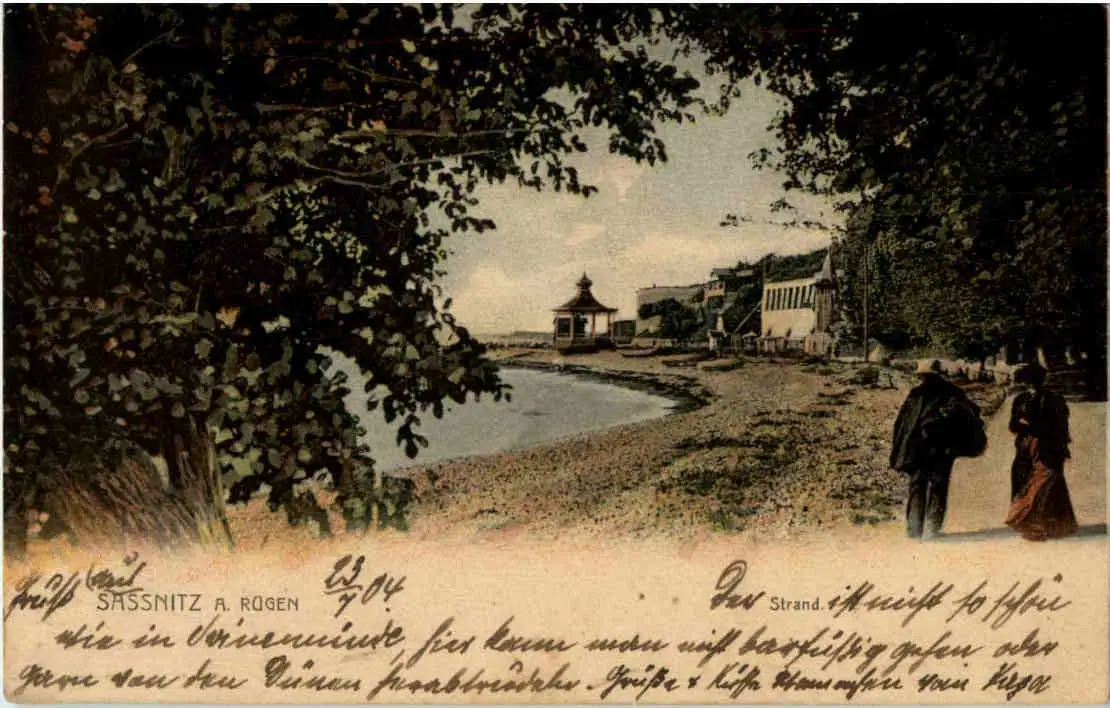 Gruß aus SASSNITZ A. RÜGEN 23/7 04. Der Strand. ist nicht so schön
wie in Swinemünde, hier kann man nicht barfüßig gehen oder
gar von den Dünen herabtrudeln. Grüße + Küsse von